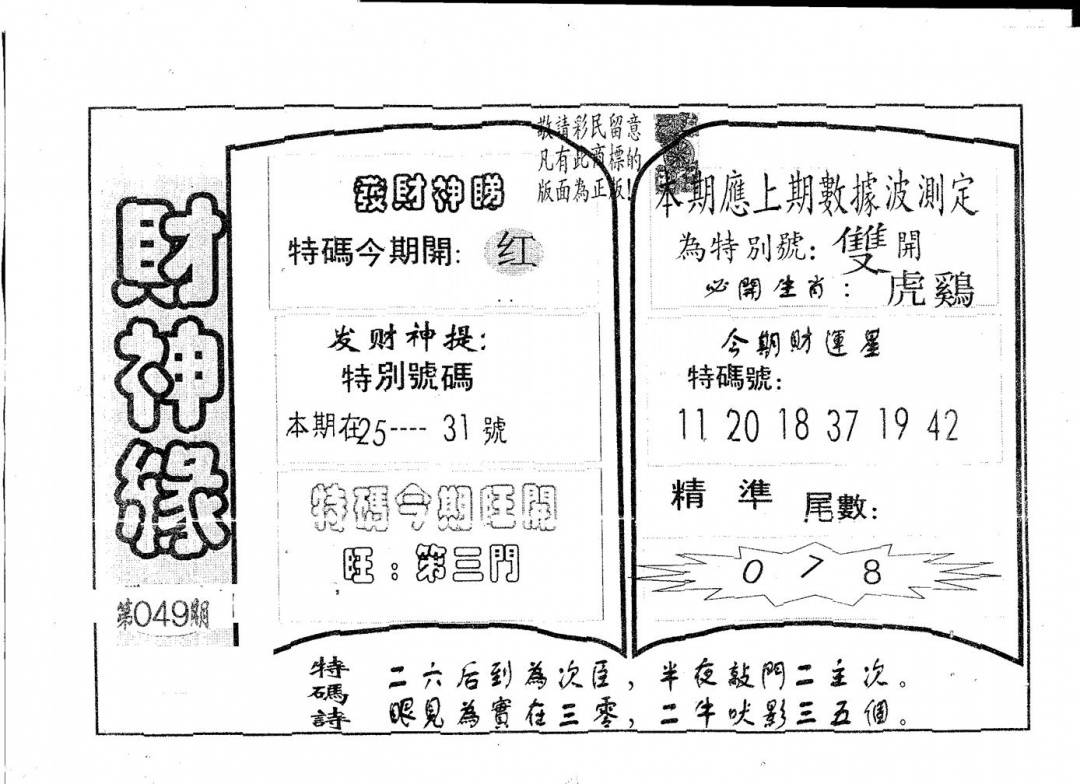 財神緣
第049期
敬請彩民留意
凡有此商標的
版面為正版!
發財神睇
特碼今期開: 红
发财神提:
特別號碼
本期在25---- 31 號
特碼今期旺開
旺:第三門
本期應上期數據波測定
為特別號: 雙開
必開生肖: 虎鷄
今期財運星
特碼號:
11 20 18 37 19 42
精 準 尾數:
0 7 8
特碼詩
二六后到為次臣,半夜敲門二主次。
眼見為實在三零,二牛吠影三五個。